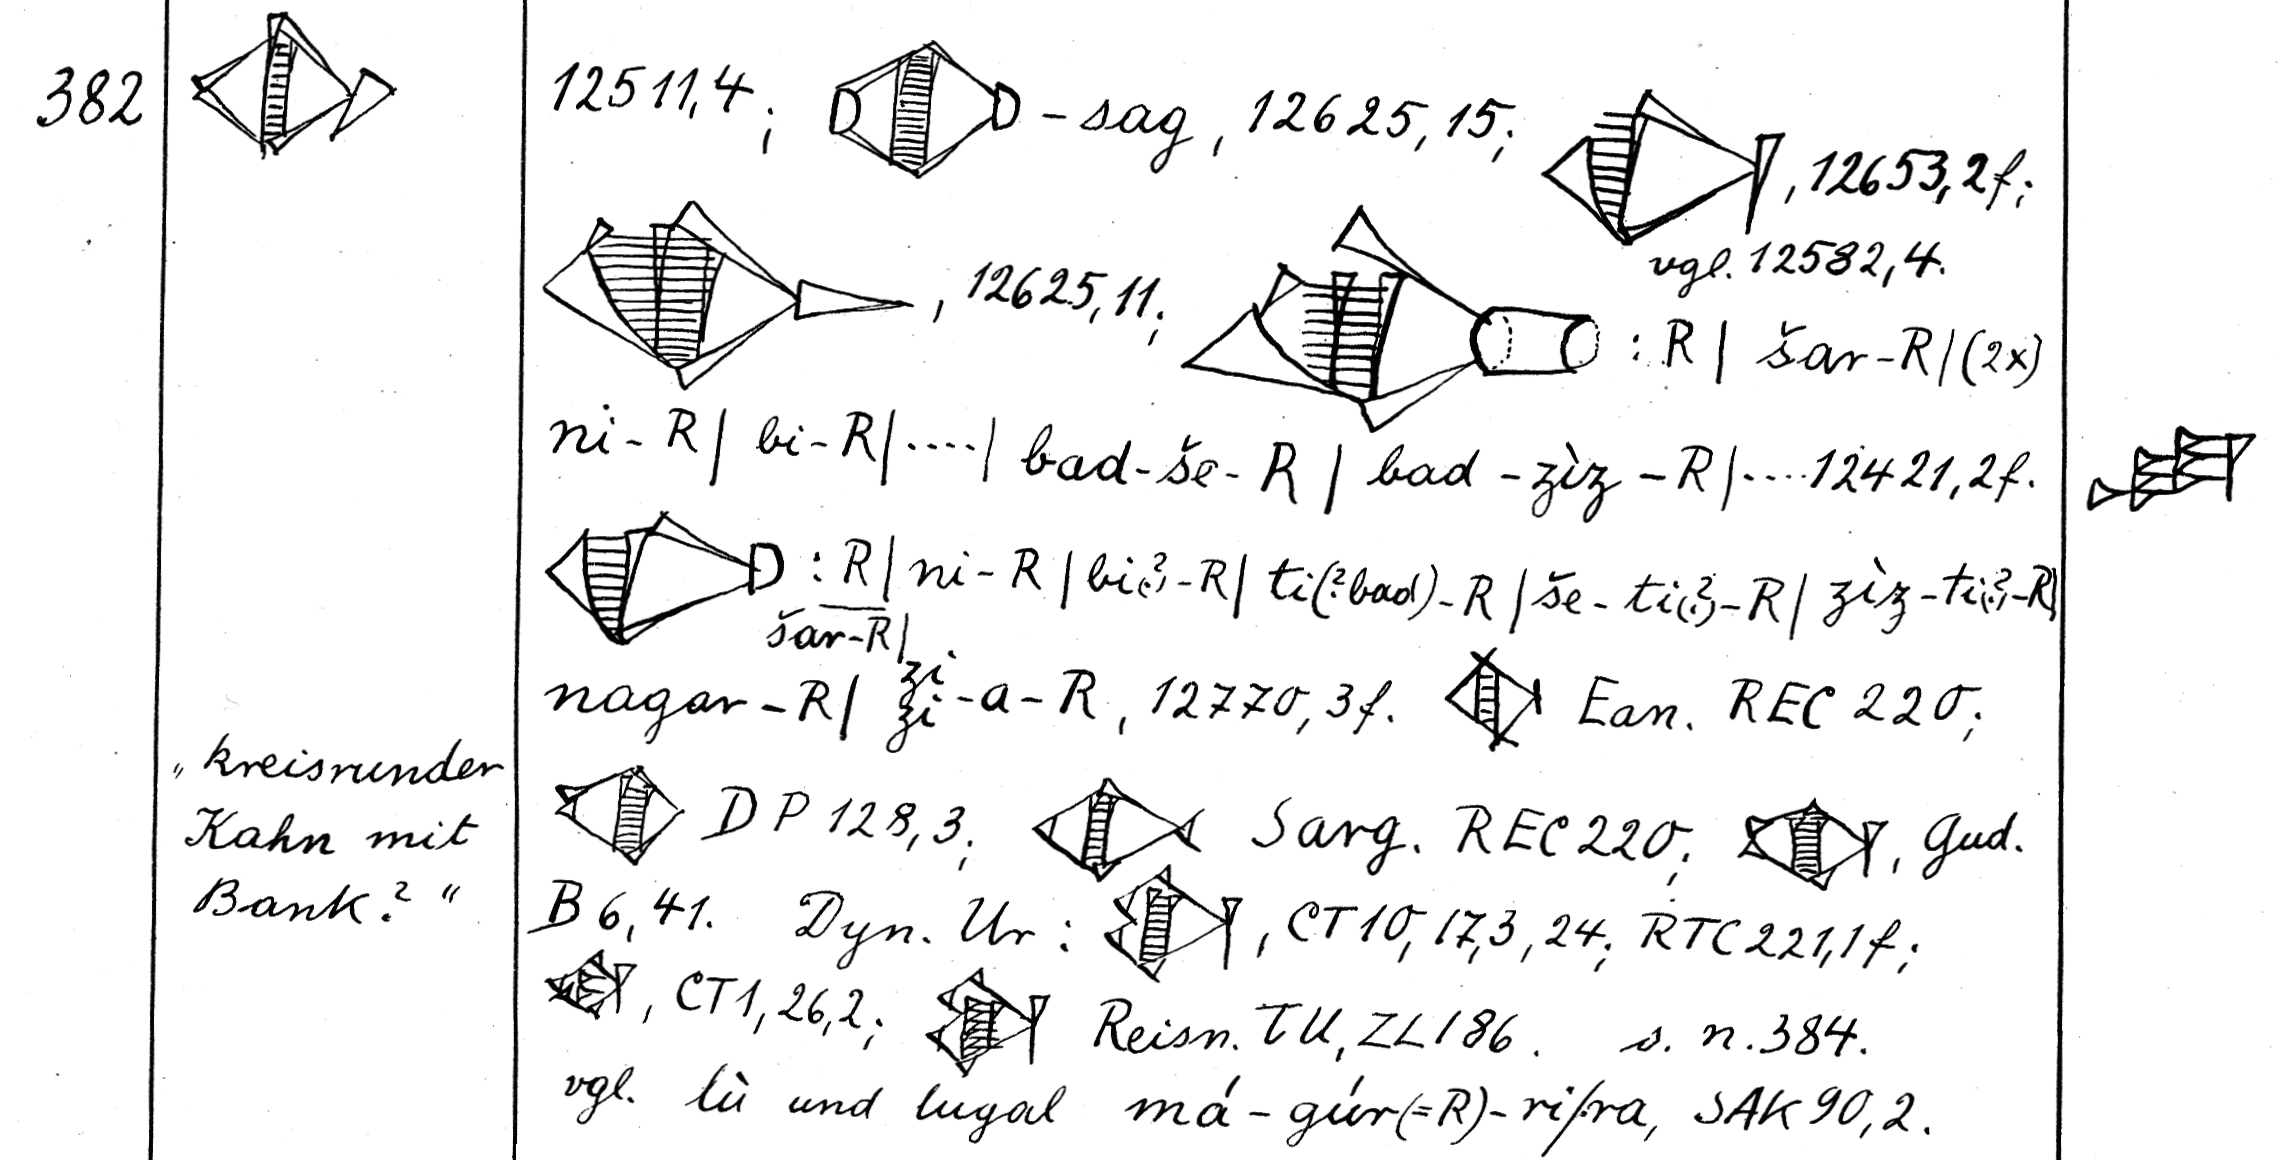 382 12511,4; -sag, 12625,15; , 12653,2f;
vgl. 12582,4.
, 12625,11; : R | šar-R | (2x)
ni-R | bi-R | ···· | bad-še-R | bad-zìz-R | ····12421,2f.
: R | ni-R | bi(?)-R | ti(?bad)-R | še-ti(?)-R | zìz-ti(?)-R |
šar-R |
nagar-R | zi zi-a-R, 12770,3f. Ean. REC 220;
„kreisrunder
Kahn mit
Bank?“
DP 128,3; Sarg. REC 220; , Gud.
B 6,41. Dyn. Ur: , CT 10,17,3,24; RTC 221,1f;
, CT 1,26,2; Reisn. TU, ZL 186. s. n. 384.
vgl. lù und lugal má-gúr(=R)-ri/ra, SAK 90,2.